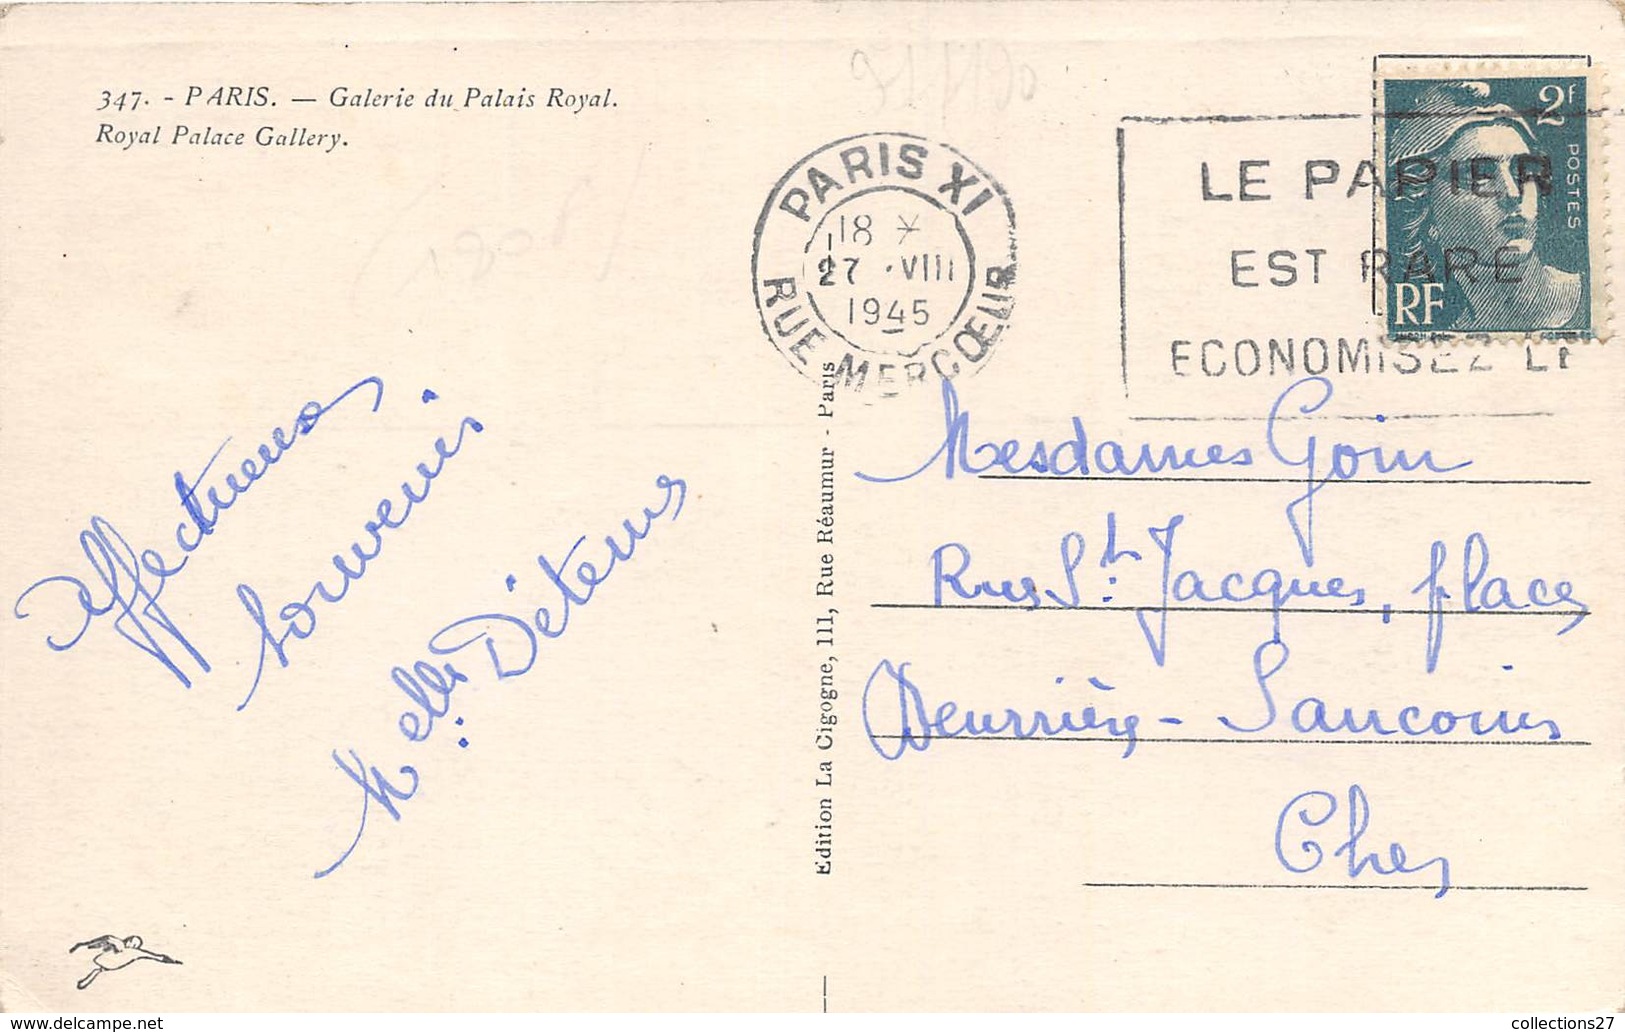 347. - PARIS. — Galerie du Palais Royal.
Royal Palace Gallery.
PARIS XI
18 *
27 · VIII
1945
RUE MERCŒUR
LE PAPIER
EST RARE
ECONOMISEZ LE
2f
POSTES
RF
Affectueux
souvenir
Melle Déterne
Edition La Cigogne, 111, Rue Réaumur - Paris
Mesdames Goin
Rue St. Jacques, place
Deurrière - Sancoins
Cher
collections27